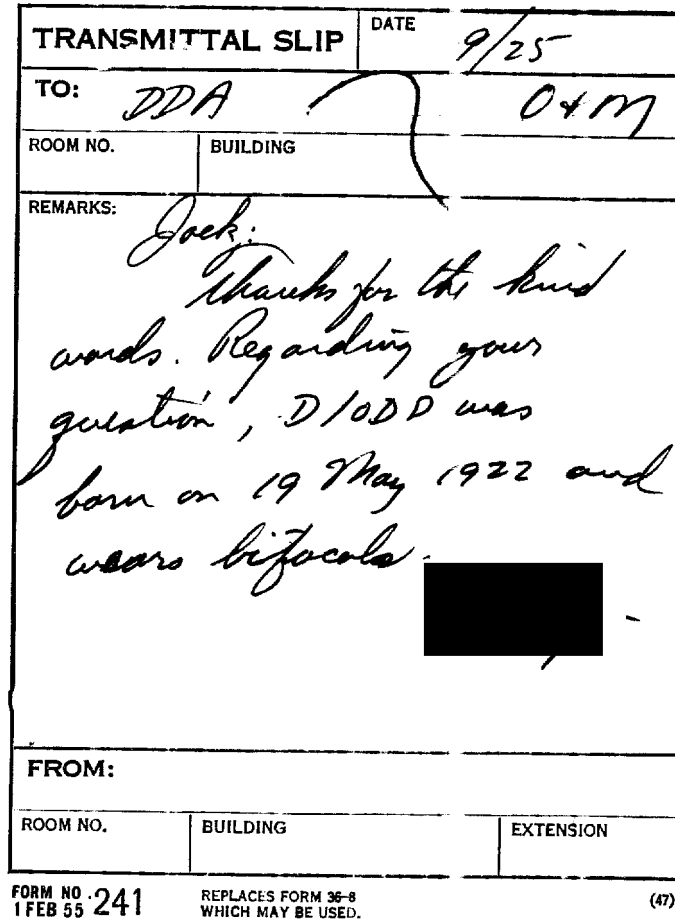 TRANSMITTAL SLIP DATE 9/25
TO: DDA O+M
ROOM NO. BUILDING
REMARKS: Jack:
Thanks for the kind
words. Regarding your
question, D/ODD was
born on 19 May 1922 and
wears bifocals.
FROM:
ROOM NO. BUILDING EXTENSION
FORM NO. 241 REPLACES FORM 36-8 (47)
1 FEB 55 WHICH MAY BE USED.